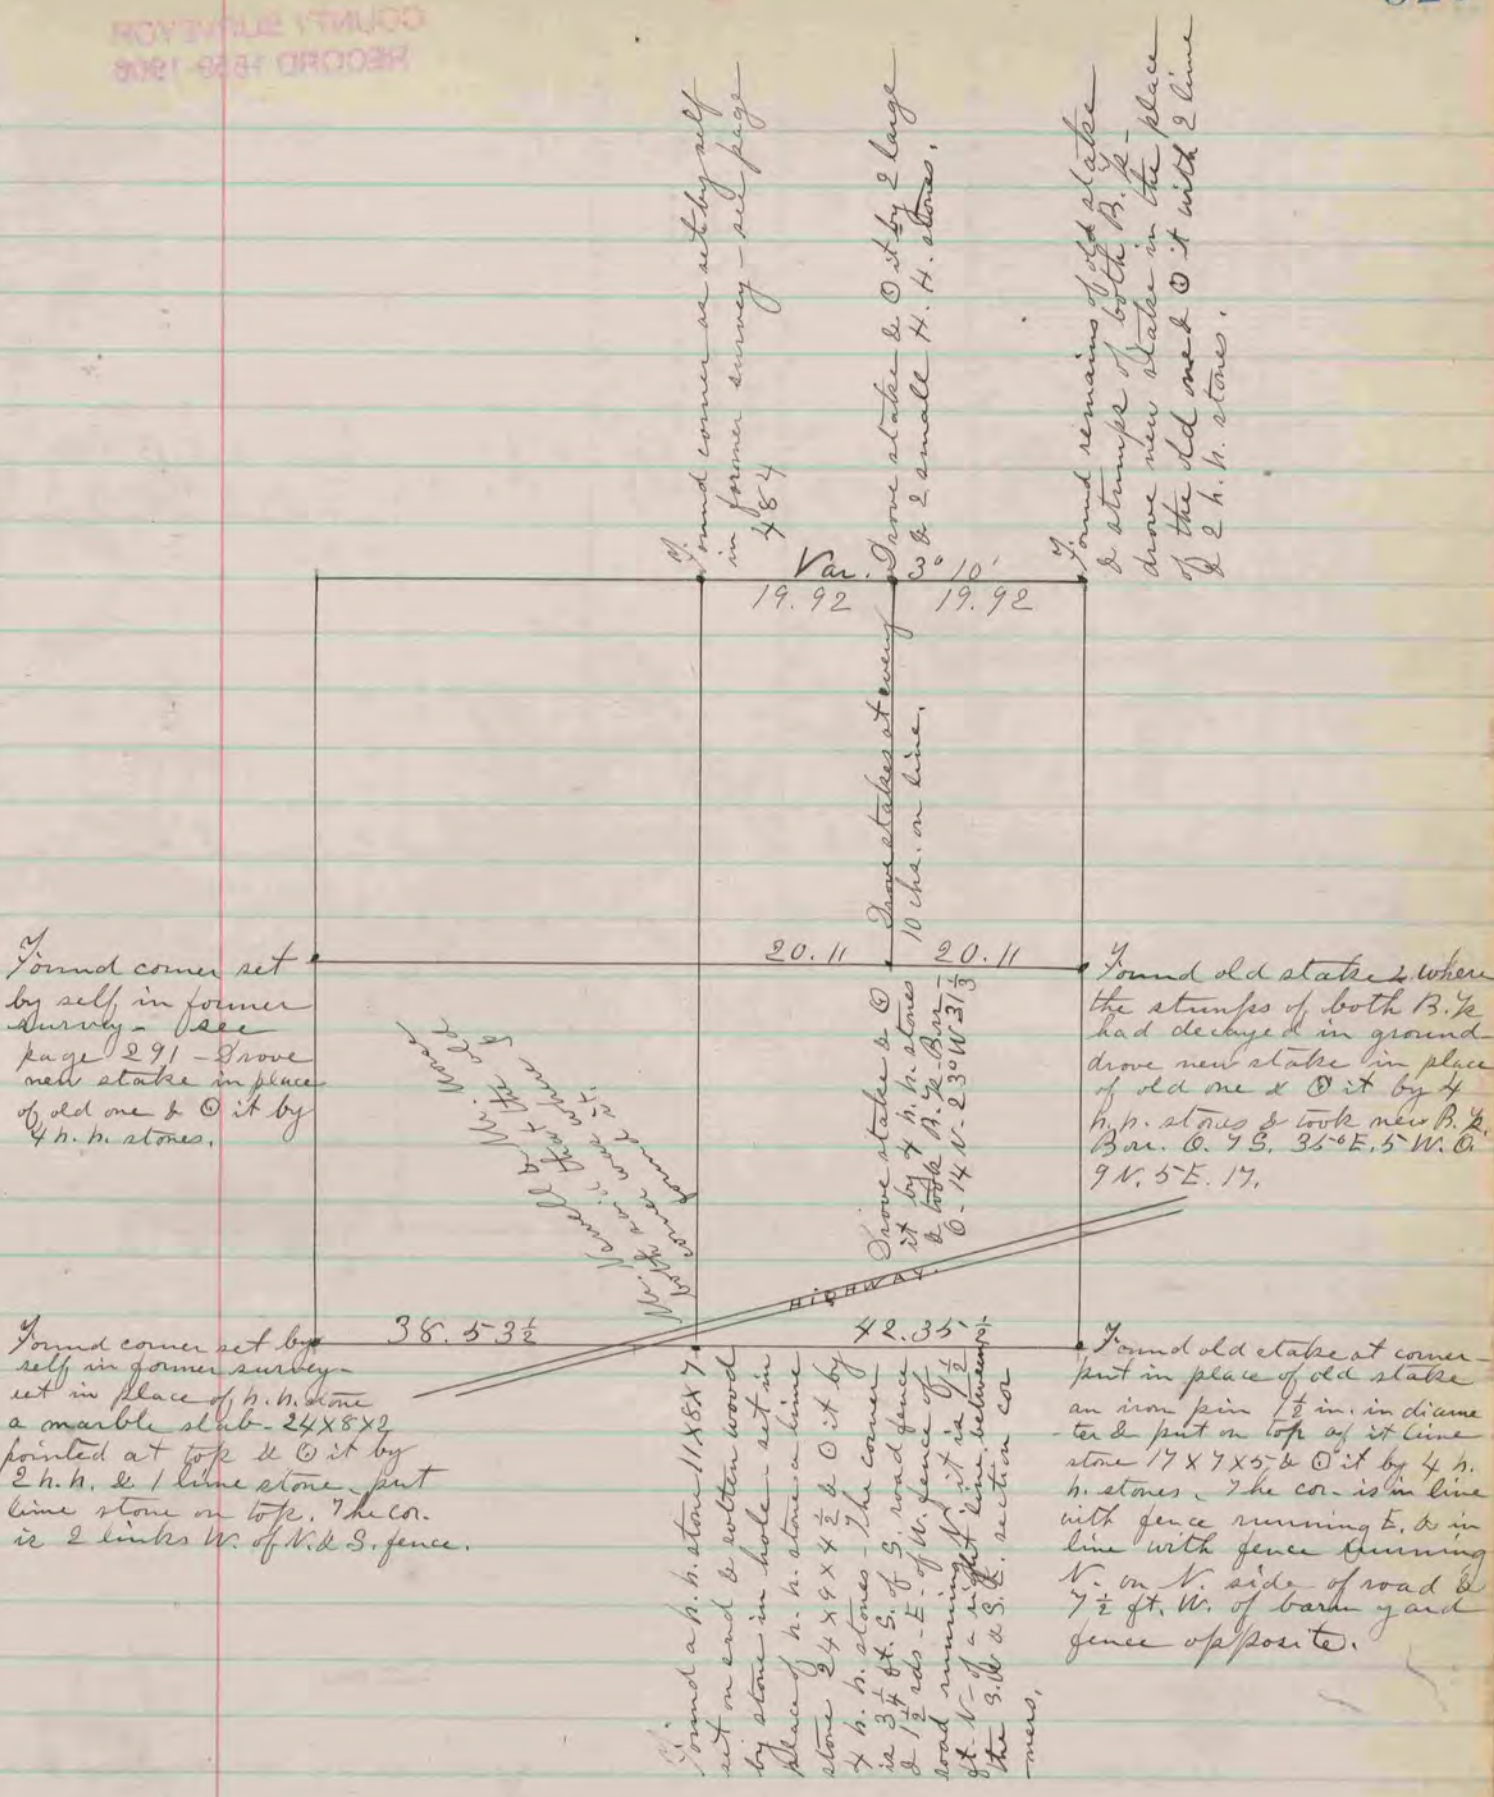 COUNTY SURVEYOR
RECORD 1859-1906
Found corner as set by self
in former survey - see page
484
Drove stake & ⊙ it by 2 large
& 2 small H. H. stones.
Found remains of old stake
& stumps of both B. Ts -
drove new stake in the place
of the old one & ⊙ it with 2 lime
& 2 h. h. stones.
Var. 3° 10'
19.92 19.92
Drove stakes at every
10 chs. on line.
20.11 20.11
Found corner set
by self in former
survey - see
page 291 - Drove
new stake in place
of old one & ⊙ it by
4 h. h. stones.
Mr. & Mr.
both said that the old
corner was where I
found it.
Drove stake & ⊙
it by 4 h. h. stones
& took B. Ts - Burr -
O - 14 N - 23° W 31 1/3
Found old stake & where
the stumps of both B. Ts
had decayed in ground -
drove new stake in place
of old one & ⊙ it by 4
h. h. stones & took new B. Ts.
Burr. O. 7 S. 35° E. 5 W. O.
9 N. 5 E. 17.
HIGHWAY.
38.53 1/2 42.35 1/2
Found corner set by
self in former survey -
set in place of h. h. stone
a marble slab - 24 X 8 X 2
pointed at top & ⊙ it by
2 h. h. & 1 lime stone - put
lime stone on top. The cor.
is 2 links W. of N. & S. fence.
Found a h. h. stone 11 X 8 X 7
set on end & rotten wood
by stone in hole - set in
place of h. h. stone a lime
stone 24 X 9 X 4 1/2 & ⊙ it by
4 h. h. stones - The corner
is 3 1/4 ft. S. of S. road fence
& 1 1/2 rds - E - of W. fence of
road running N. it is 9 1/2
ft. N - of a right line between
the S.W. & S.E. section cor
-ners.
Found old stake at corner -
put in place of old stake
an iron pin 1 1/2 in. in diame
-ter & put on top of it lime
stone 17 X 7 X 5 & ⊙ it by 4 h.
h. stones. The cor. is in line
with fence running E. & in
line with fence running
N. on N. side of road &
7 1/2 ft. W. of barn yard
fence opposite.